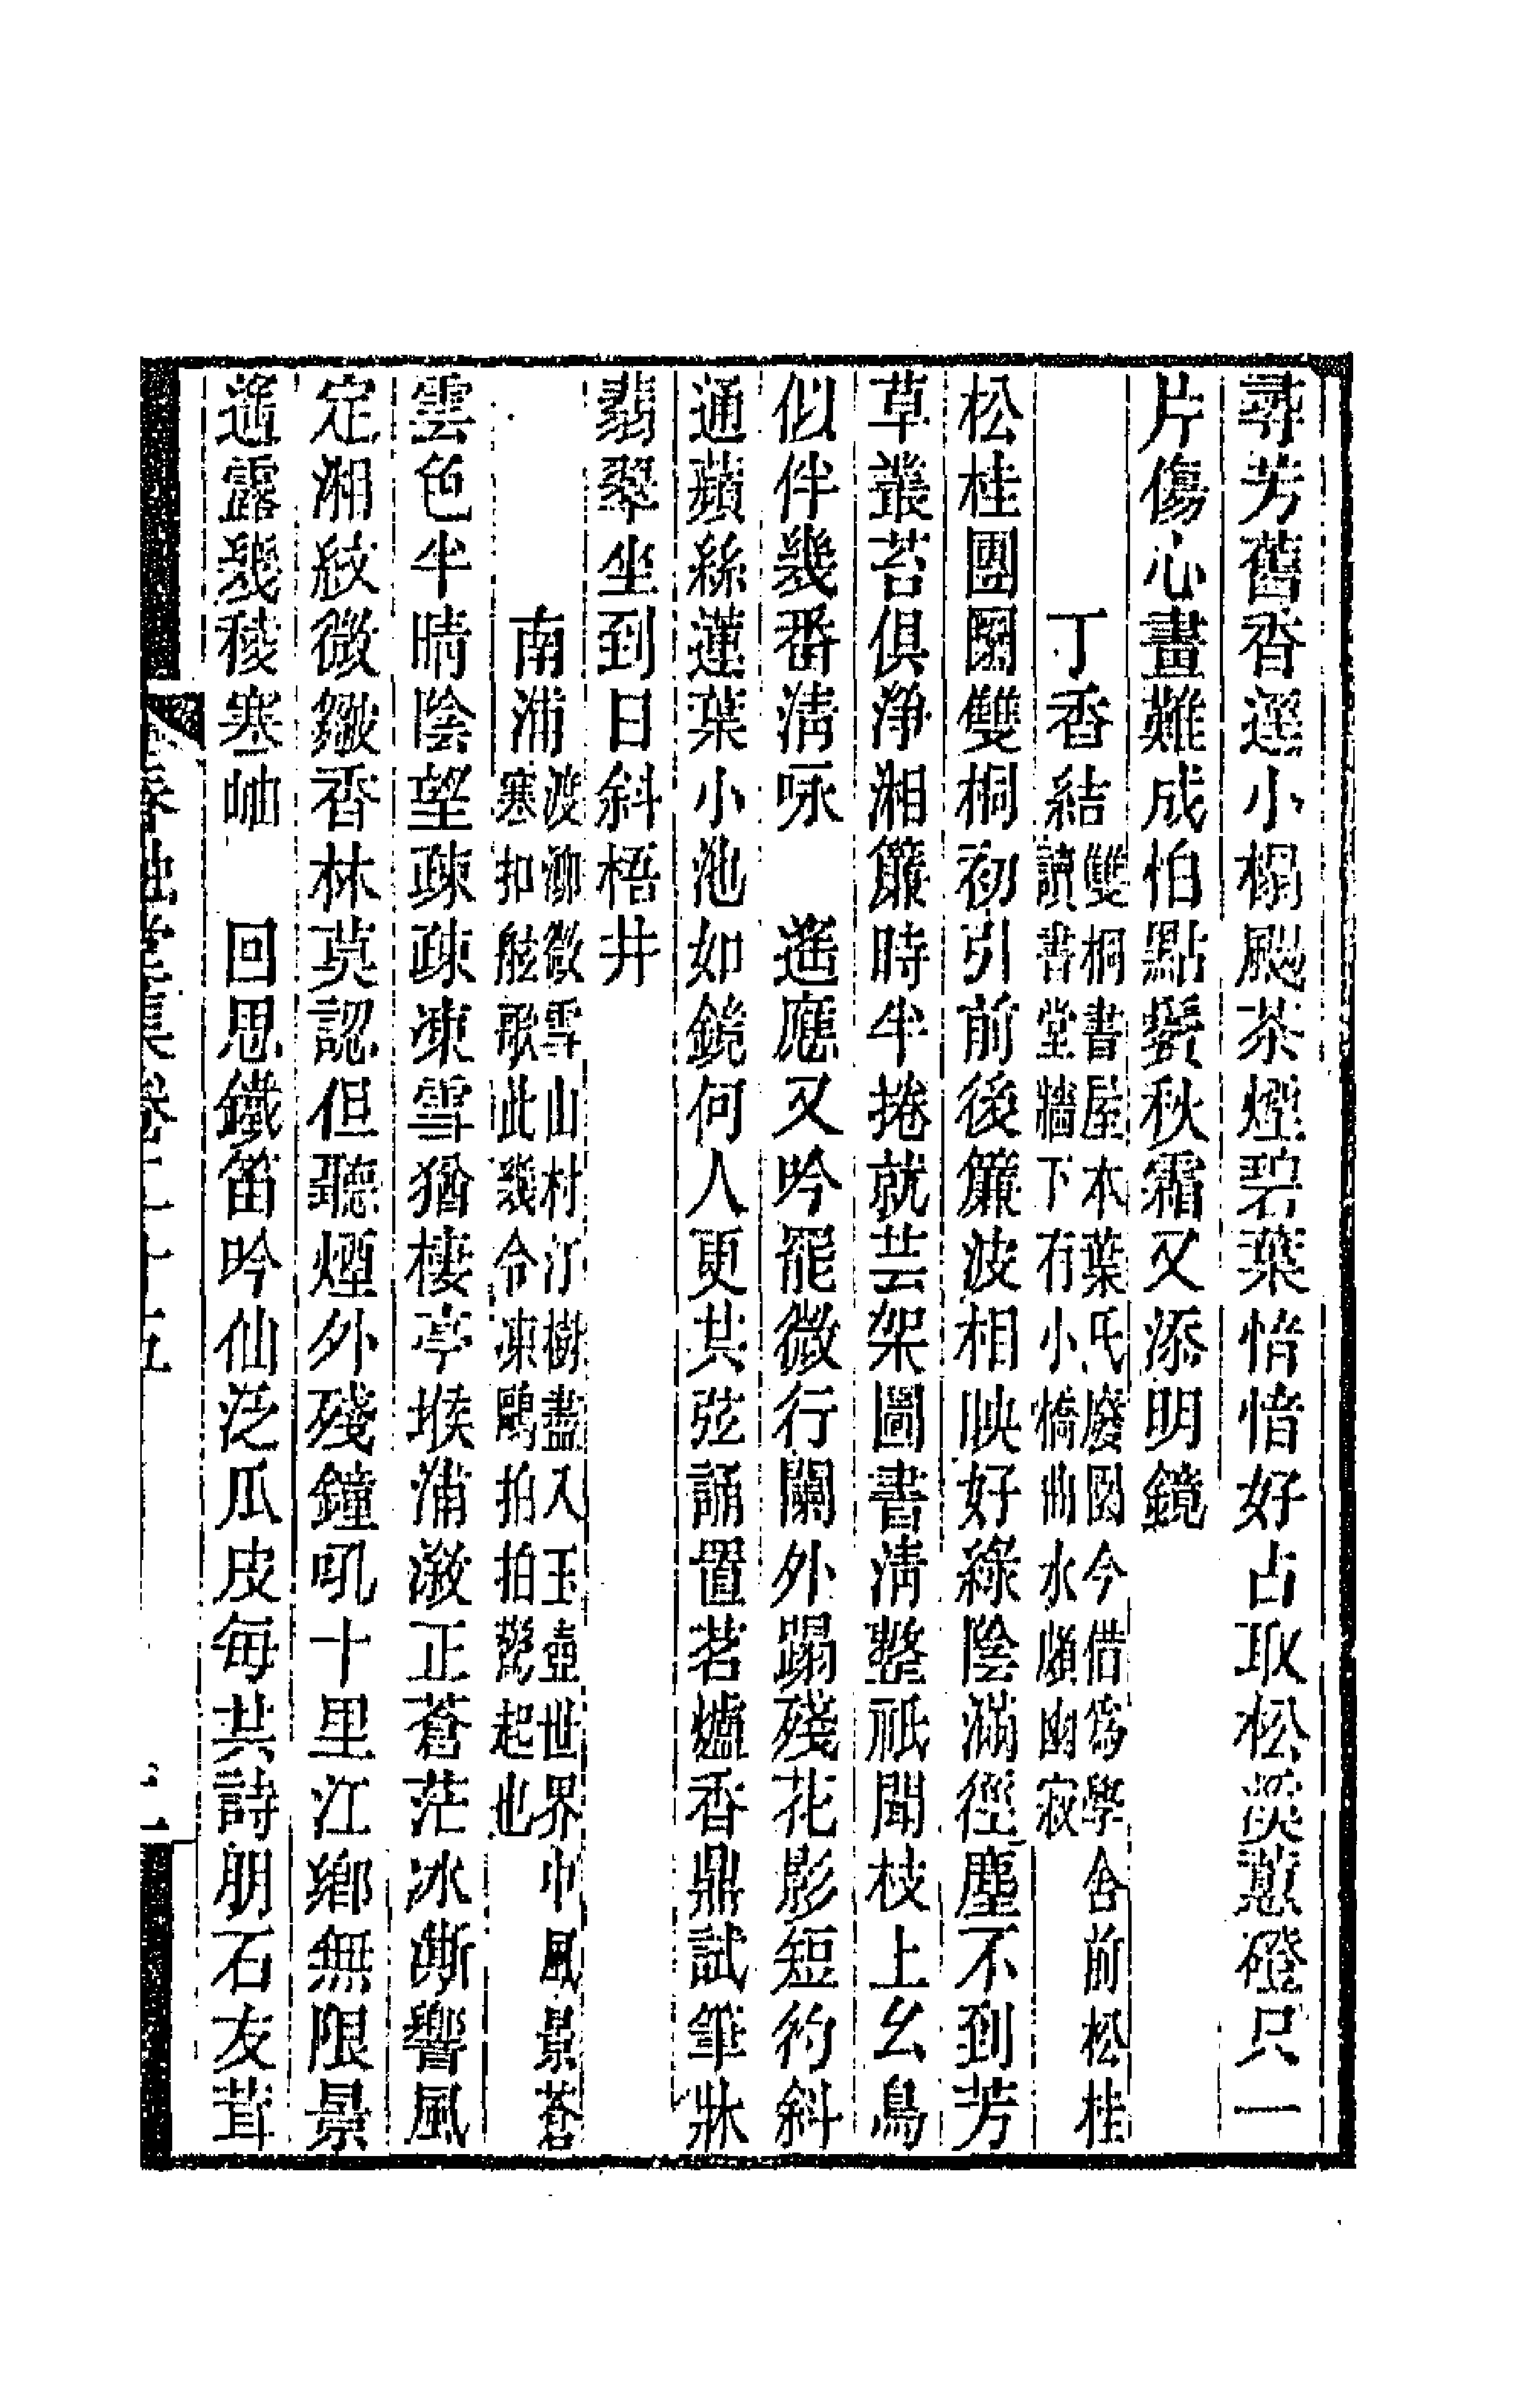 尋芳舊香逕小榻颺茶煙碧葉愔愔好占取松溪蕙磴只一
片傷心畫難成怕點鬢秋霜又添明鏡
丁香結雙桐書屋本葉氏廢園今借爲學舍前松桂
讀書堂牆下有小橋曲水頗幽寂
松桂團圞雙桐初引前後簾波相映好綠陰滿徑塵不到芳
草叢苔俱淨湘簾時半捲就芸架圖書清整祇聞枝上幺鳥
似伴幾番淸咏　遙應又吟罷微行闌外蹋殘花影短彴斜
通蘋絲蓮葉小池如鏡何人更共弦誦置茗爐香鼎試筆牀
翡翠坐到日斜梧井
南浦渡泖微雪山村汀樹盡入玉壺世界中風景蒼
寒扣舷歌此幾令凍鷗拍拍驚起也
雲色半晴陰望疎疎凍雪猶棲亭堠浦漵正蒼茫冰澌響風
定湘紋微皺香林莫認但聽煙外殘鐘吼十里江鄉無限景
遙露幾稜寒岫　回思鐵笛吟仙泛瓜皮每共詩朋石友茸
春融堂集卷二十五